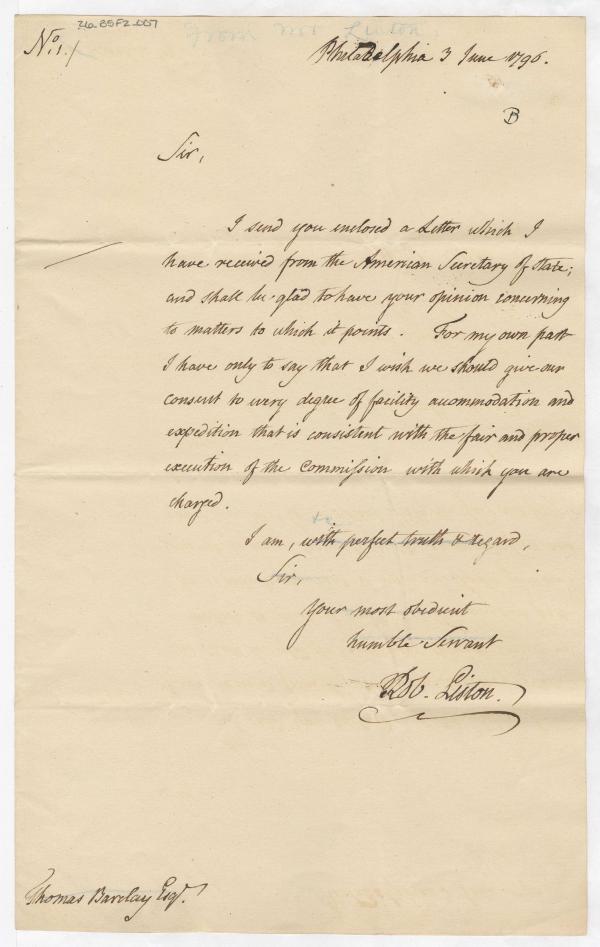 From Mr Liston,
No. 1.
Philadelphia 3 June 1796.
B
Sir,
I send you enclosed a Letter which I
have received from the American Secretary of State;
and shall be glad to have your opinion concerning
to matters to which it points. For my own part
I have only to say that I wish we should give our
consent to every degree of facility accommodation and
expedition that is consistent with the fair and proper
execution of the Commission with which you are
charged.
I am, with perfect truth & regard,
Sir,
Your most obedient
humble Servant
Rob. Liston.
Thomas Barclay Esqr.